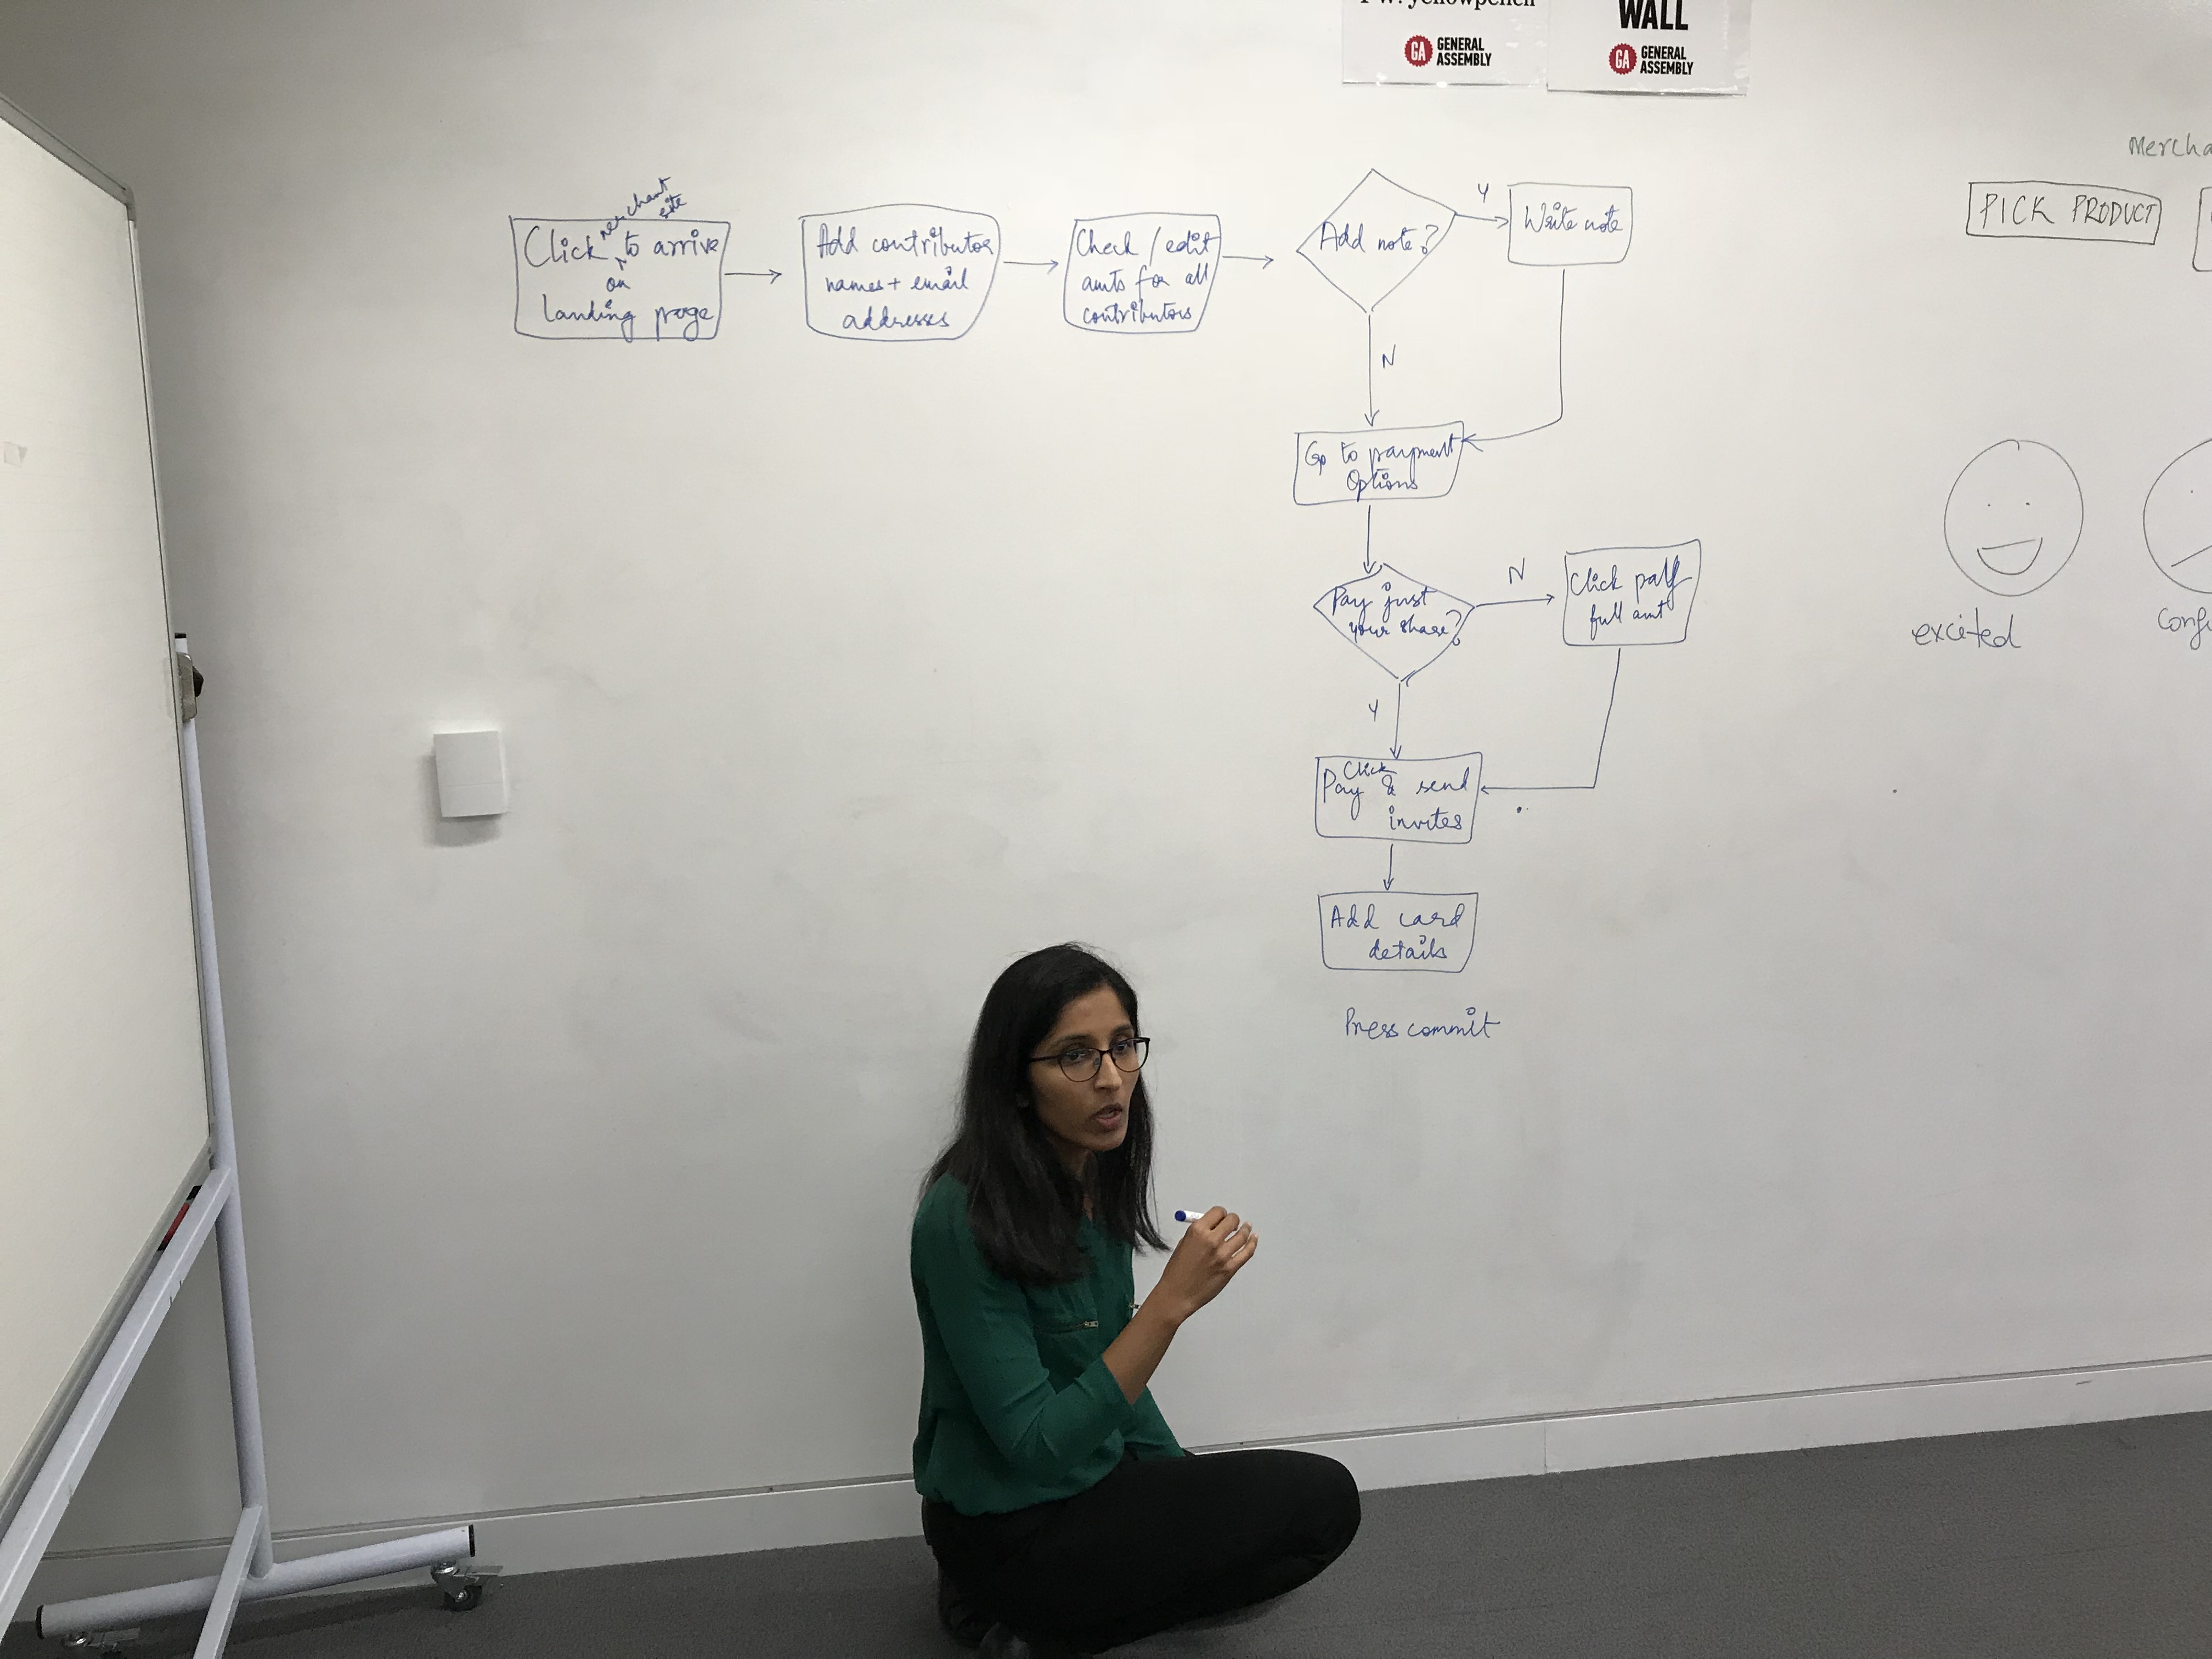 WALL
GA GENERAL
ASSEMBLY
GA GENERAL
ASSEMBLY
merchant
site
Click to arrive
on
landing page
Add contributor
names + email
addresses
Check / edit
amts for all
contributors
Add note?
Y
Write note
N
Go to payment
Options
Pay just
your share?
N
Click
full amt
Y
Click
Pay & send
invites
Add card
details
Press commit
Mercha
PICK PRODUCT
excited
confu